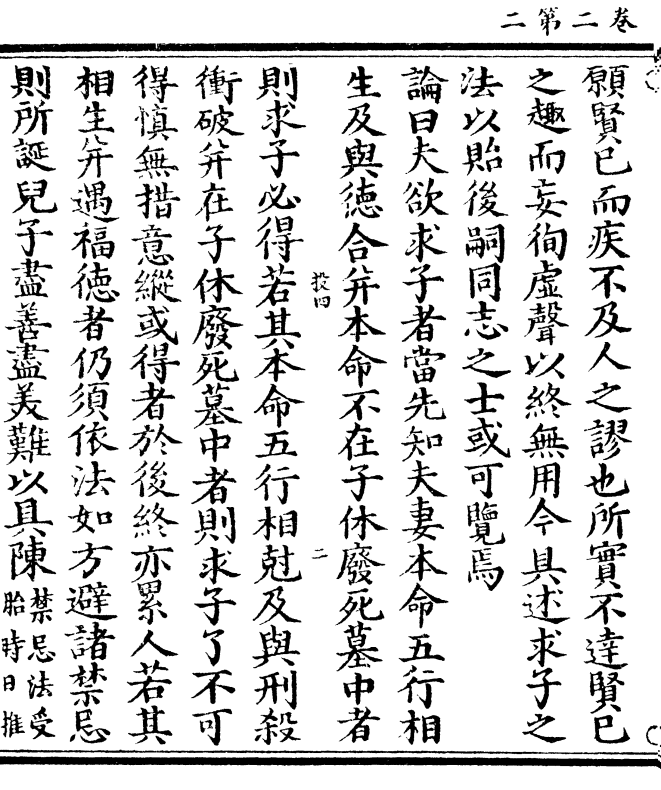 卷二第二
願賢已而疾不及人之謬也所實不達賢已
之趣而妄徇虛聲以終無用今具述求子之
法以貽後嗣同志之士或可覽焉
論曰夫欲求子者當先知夫妻本命五行相
生及與德合并本命不在子休廢死墓中者
則求子必得若其本命五行相尅及與刑殺
衝破并在子休廢死墓中者則求子了不可
得慎無措意縱或得者於後終亦累人若其
相生并遇福德者仍須依法如方避諸禁忌
則所誕兒子盡善盡美難以具陳禁忌法受
胎時日推
投四
二